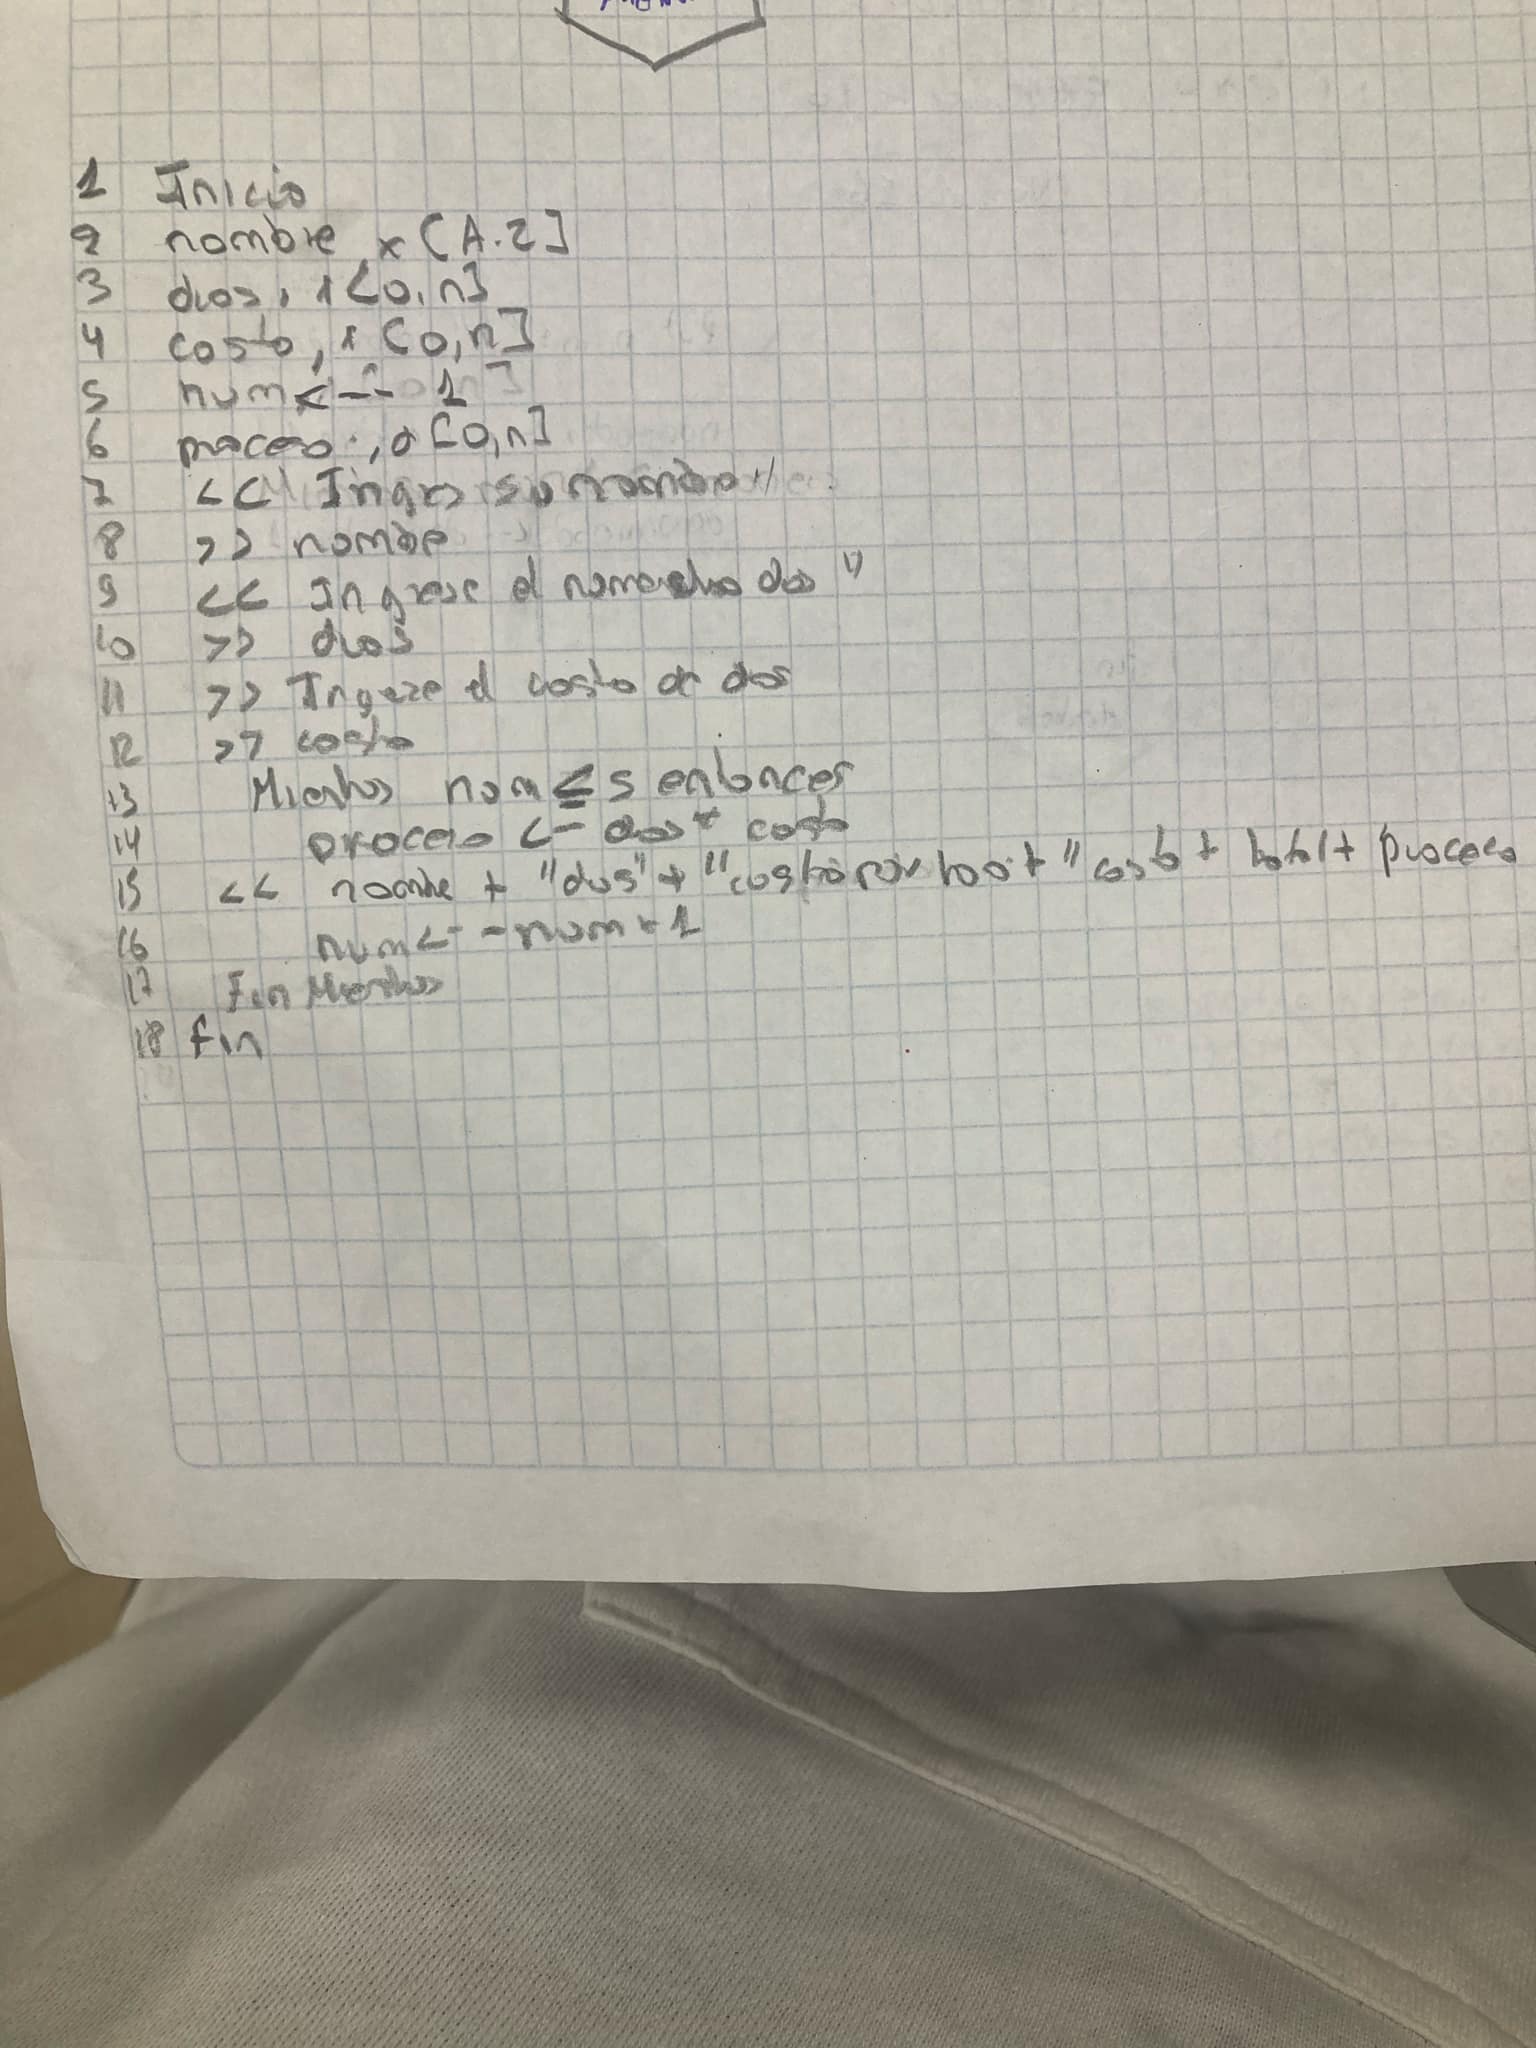 1 Inicio
2 nombre, x [A.Z]
3 dias, x <0,n]
4 costo, x [0,n]
5 num <-- 1
6 proceso, x [0,n]
7 << Ingres su nombre"
8 >> nombre
9 << Ingrese el dias"
10 >> dias
11 >> Ingese el costo de dias
12 >> costo
13 Mientras num ≤ 5 entonces
14 proceso <- dias * costo
15 << nombre + "dias" + "costo por + " costo + total + proceso
16 num <-- num + 1
17 Fin Mientras
18 fin